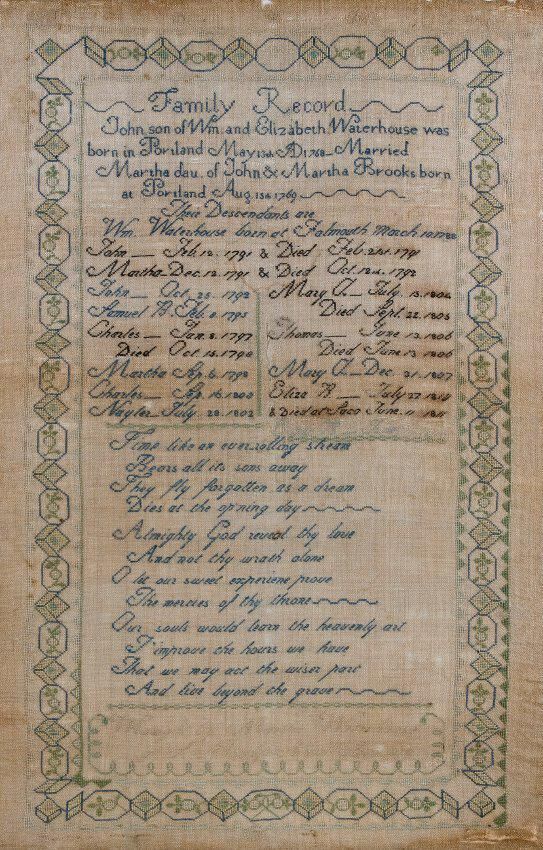 Family Record
John son of Wm. and Elizabeth Waterhouse was
born in Portland May 13th AD 1768 Married
Martha dau. of John & Martha Brooks born
at Portland Aug. 15th 1769
Their Descendants are
Wm. Waterhouse born at Falmouth March
John Feb. 12. 1791 & Died Feb. 21st. 1791
Martha Dec. 12. 1791 & Died Oct. 12th. 1792
John Oct. 25. 1792
Samuel B. Feb. 6. 1795
Charles Jan. 2. 1797
Died Oct. 15. 1798
Martha Sep. 6. 1798
Charles Sep. 16. 1800
Nayler July. 28. 1802
Mary A. July. 15. 1804
Died Sept. 22. 1805
Thomas June 13. 1806
Died June 13. 1806
Mary A. Dec. 21. 1807
Eliza B. July 27. 1810
& Died at Saco June. 11. 1811
Time like an everrolling stream
Bears all its sons away
They fly forgotten as a dream
Dies at the opning day
Almighty God reveal thy love
And not thy wrath alone
O let our sweet experiene prove
The mercies of thy throne
Our souls would learn the heavenly art
T improve the hours we have
That we may act the wiser part
And live beyond the grave